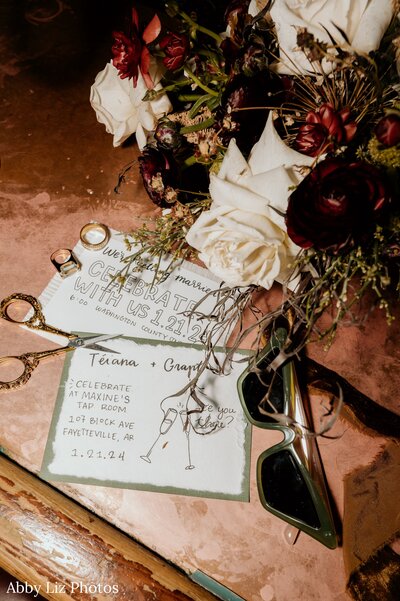 We're getting married
CELEBRATE
WITH US 1.21.2
6:00 WASHINGTON COUNTY
Téiana + Grant
CELEBRATE
AT MAXINE'S
TAP ROOM
107 BLOCK AVE
FAYETTEVILLE, AR
1.21.24
see you
there?
Abby Liz Photos